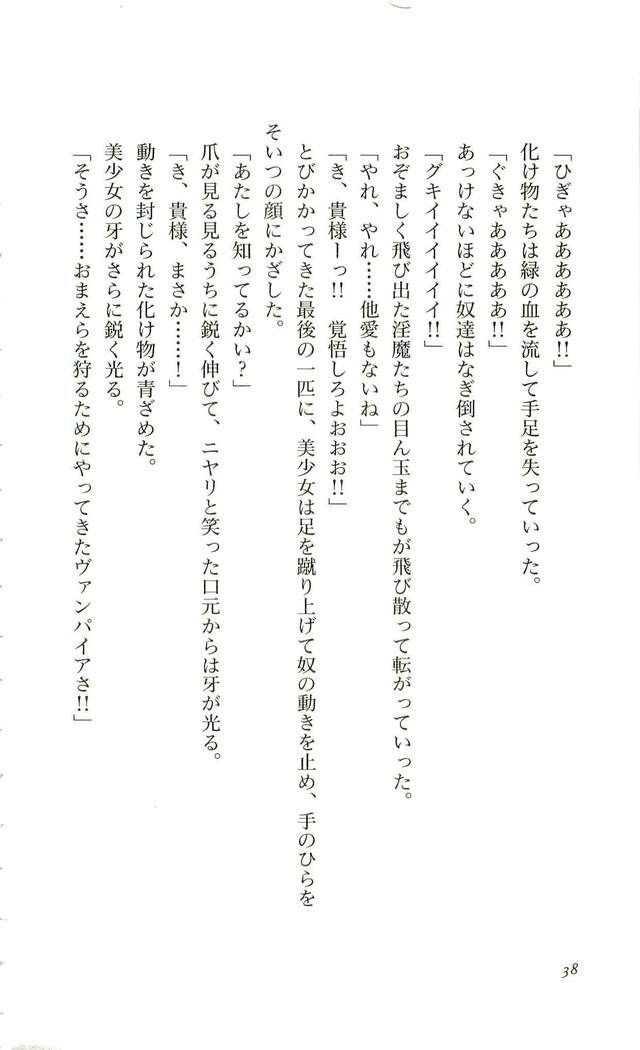 「ひぎゃあああああ!!」
化け物たちは緑の血を流して手足を失っていった。
「ぐきゃあああああ!!」
あっけないほどに奴達はなぎ倒されていく。
「グキイイイイイイ!!」
おぞましく飛び出た淫魔たちの目ん玉までもが飛び散って転がっていった。
「やれ、やれ……他愛もないね」
「き、貴様ーっ!!　覚悟しろよおおお!!」
とびかかってきた最後の一匹に、美少女は足を蹴り上げて奴の動きを止め、手のひらを
そいつの顔にかざした。
「あたしを知ってるかい？」
爪が見る見るうちに鋭く伸びて、ニヤリと笑った口元からは牙が光る。
「き、貴様、まさか……！」
動きを封じられた化け物が青ざめた。
美少女の牙がさらに鋭く光る。
「そうさ……おまえらを狩るためにやってきたヴァンパイアさ!!」
38